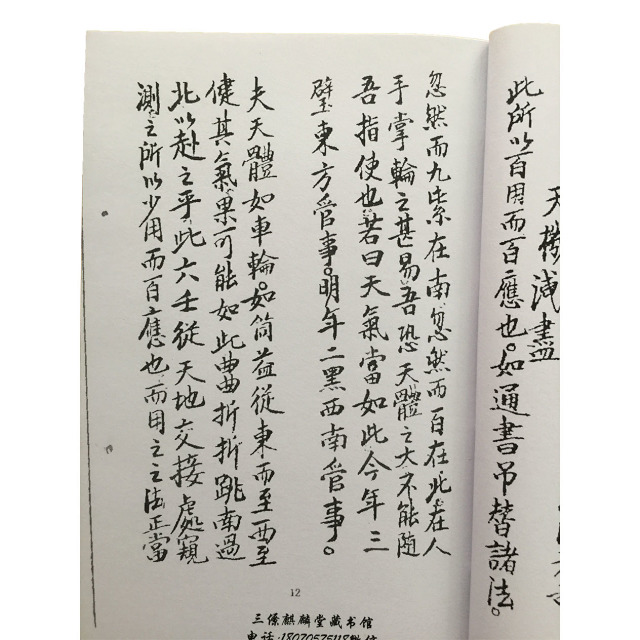 此所以百用而百應也。如通書吊替諸法。
天機洩盡
忽然而九紫在南忽然而百在此在人
手掌輪之甚易吾恐天體之大不能随
吾指使也若曰天氣當如此今年三
壁東方管事。明年二黑西南管事。
夫天體如車輪。如筒益從東而至西至
健其氣果可能如此曲折折跳南過
北以赴之乎此六壬從天地交接處窺
測之所以少用而百應也而用之之法正當
12
三僚麒麟堂藏书馆
电话:18070525118微信